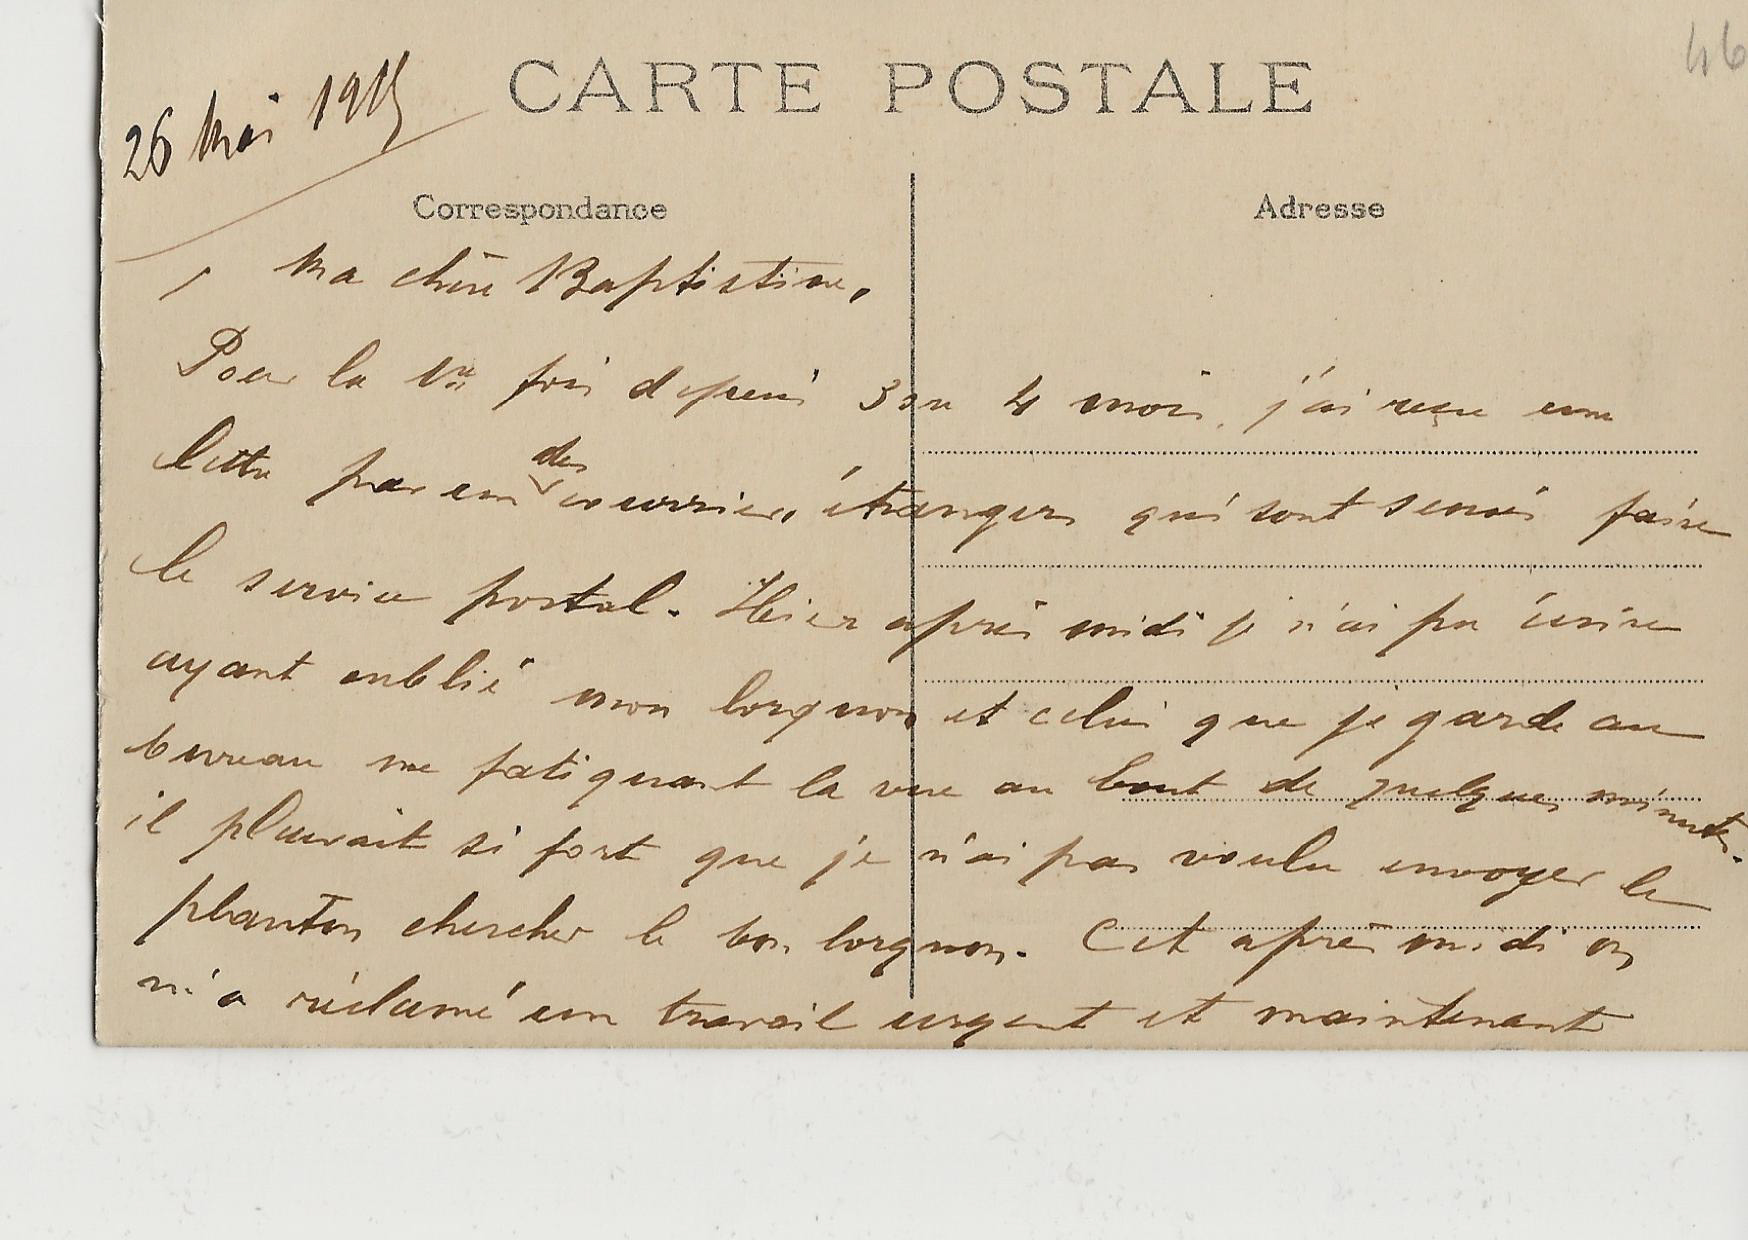 46
CARTE POSTALE
26 Mai 1915
Correspondance
Adresse
Ma chère Baptistine,
Pour la 1re fois depuis 3 ou 4 mois, j'ai reçu une
lettre par un des courriers étrangers qui sont sensés faire
le service postal. Hier après midi je n'ai pu écrire
ayant oublié mon lorgnon et celui que je garde au
bureau me fatiguant la vue au bout de quelques minutes.
il pleuvait si fort que je n'ai pas voulu envoyer le
planton chercher le bon lorgnon. Cet après midi on
m'a réclamé un travail urgent et maintenant